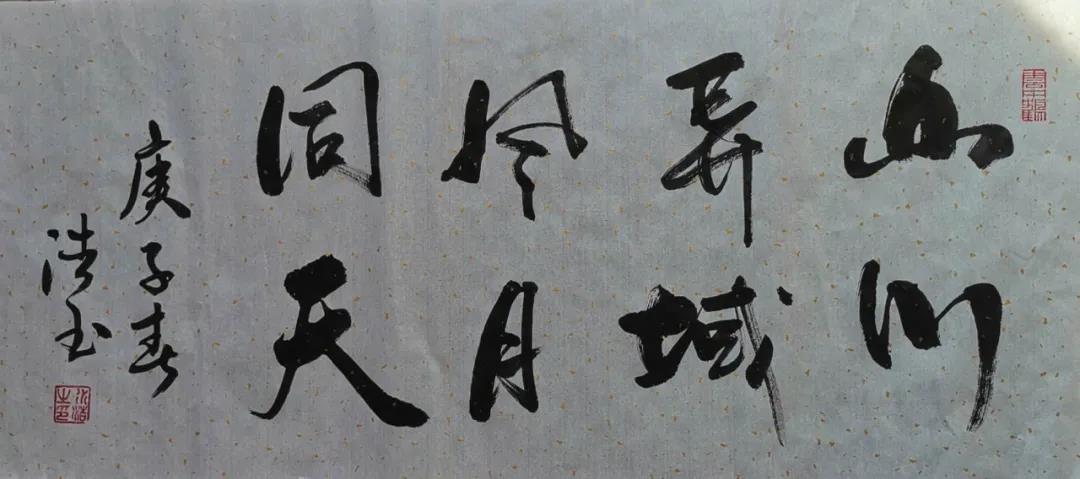 山川
异域
风月
同天
庚子春
浩